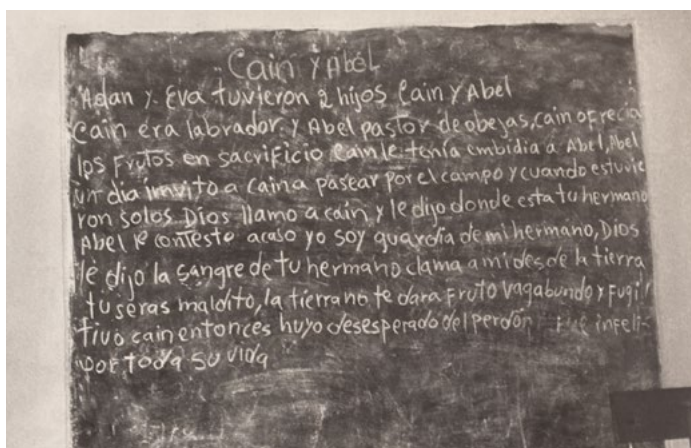 Cain y Abel
Adan y Eva tuvieron 2 hijos Cain y Abel
Cain era labrador y Abel pastor de obejas, cain ofrecia
los frutos en sacrificio Cain le tenía embidia a Abel, Abel
un dia imvito a cain a pasear por el campo y cuando estuvie
ron solos Dios llamo a cain y le dijo donde esta tu hermano
Abel le contesto acaso yo soy guardia de mi hermano, Dios
le dijo la sangre de tu hermano clama a mi desde la tierra
tu seras maldito, la tierra no te dara fruto vagabundo y fugi
tivo cain entonces huyo desesperado del perdón fue infeli
por toda su vida